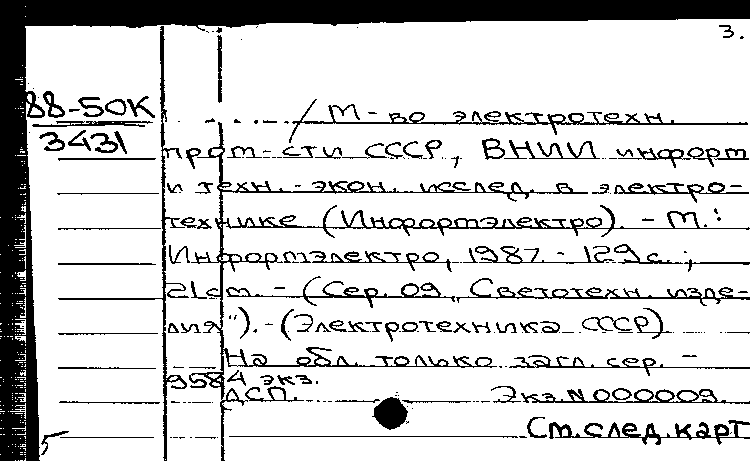 3.
88-50К
3431
/ М-во электротехн.
пром-сти СССР, ВНИИ информ
и техн.-экон. исслед. в электро-
технике (Информэлектро). - М.:
Информэлектро, 1987. - 129 с.;
21 см. - (Сер. 09 „Светотехн. изде-
лия"). - (Электротехника СССР)
На обл. только загл. сер. -
9584 экз.
ДСП. Экз. N 000009.
См. след. карт
5